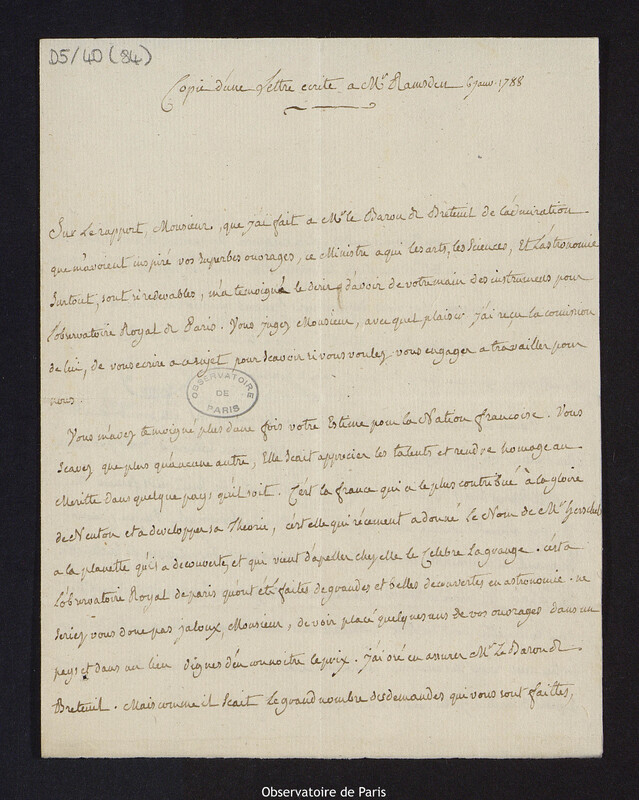 D5/40 (84)
Copie d'une Lettre ecrite a Mr. Ramsden 6 janv. 1788
Sur Le rapport, Monsieur, que j'ai fait a Mr. le Baron de Breteuil de L'admiration
que m'avoient inspiré vos superbes ouvrages, ce Ministre a qui Les arts, les Sciences, Et L'astronomie
surtout, sont si redevables, m'a temoigné le desir d'avoir de votre main des instrumens pour
l'observatoire Royal de Paris. Vous jugez Monsieur, avec quel plaisir j'ai reçu la comission
de lui, de vous ecrire a ce sujet pour scavoir si vous voulez vous engager a travailler pour
nous.
OBSERVATOIRE DE PARIS
Vous m'avez temoigné plus d'une fois votre Estime pour la Nation francoise. Vous
scavez que plus qu'aucune autre, Elle scait apprecier les talents et rendre homage au
Meritte dans quelque pays qu'il soit. C'est la france qui a le plus contribué à la gloire
de Neuton et a developper sa Theorie, c'est elle qui récement a donné le Nom de Mr. Herschel
a la planette qu'il a decouverte, et qui vient d'apeller chez elle le Celebre Lagrange. c'est a
L'observatoire Royal de paris qu'ont eté faites de grandes et belles decouvertes en astronomie. ne
seriez vous donc pas jaloux, Monsieur, de voir placé quelques uns de vos ouvrages dans un
pays et dans un lieu dignes d'en connoitre le prix. j'ai osé en assurer Mr. Le Baron de
Breteuil. Mais comme il scait Le grand nombre des demandes qui vous sont faittes,
Observatoire de Paris